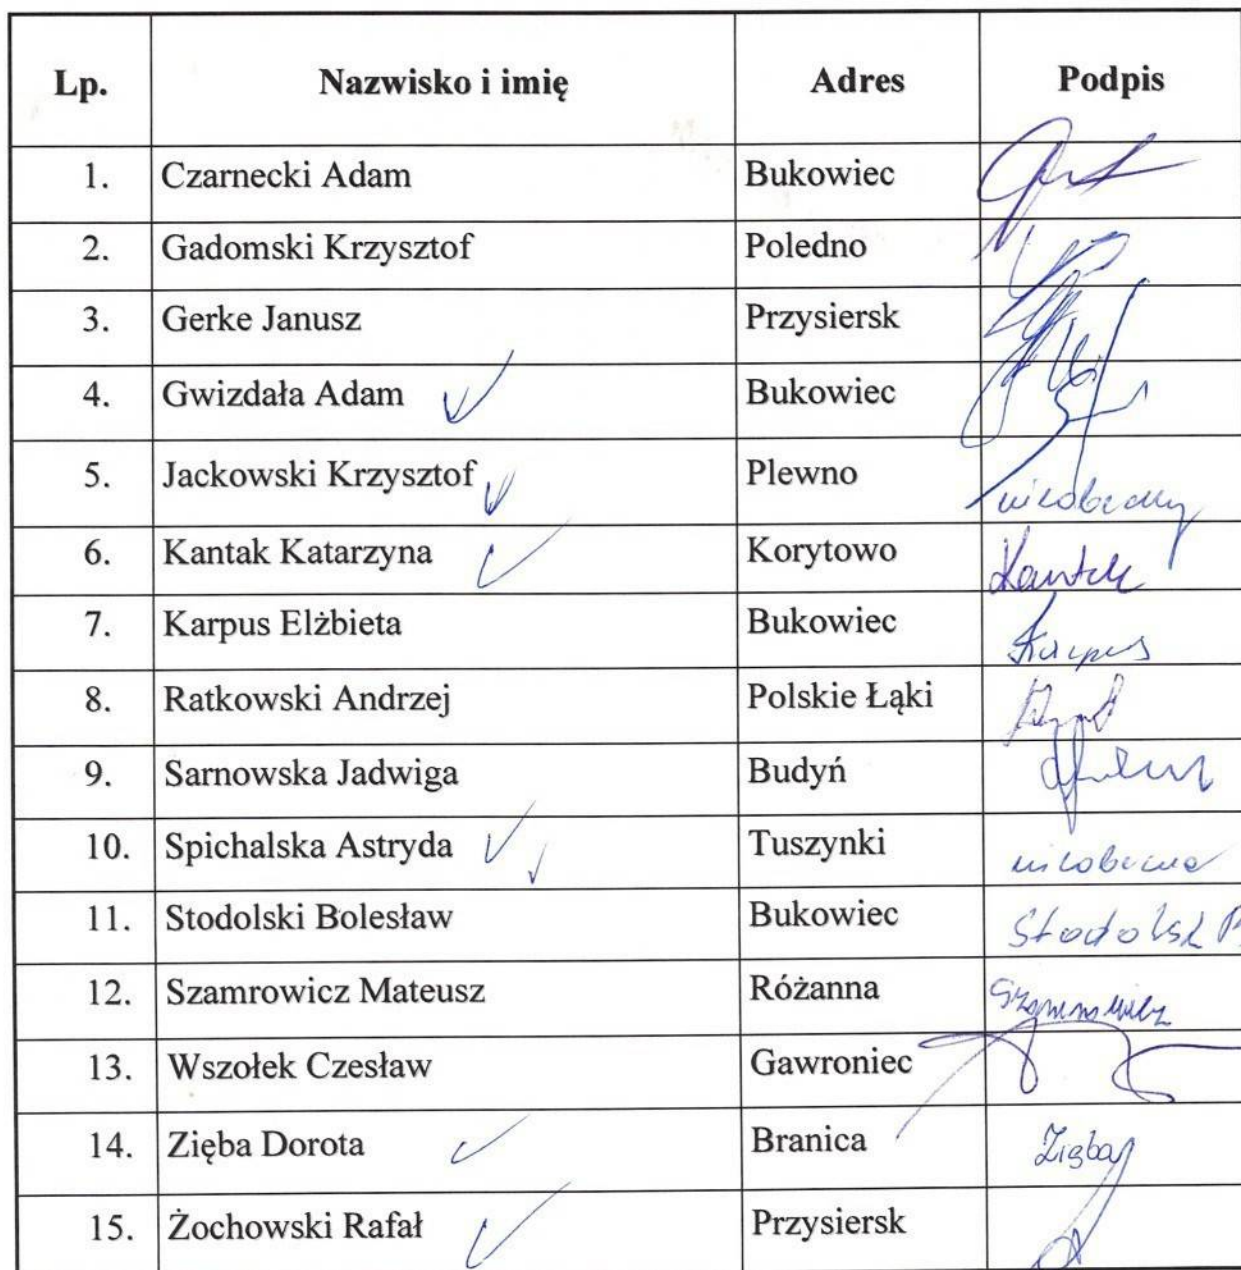 Lp. Nazwisko i imię Adres Podpis
1. Czarnecki Adam Bukowiec
2. Gadomski Krzysztof Poledno
3. Gerke Janusz Przysiersk
4. Gwizdała Adam Bukowiec
5. Jackowski Krzysztof Plewno nieobecny
6. Kantak Katarzyna Korytowo Kantak
7. Karpus Elżbieta Bukowiec Karpus
8. Ratkowski Andrzej Polskie Łąki
9. Sarnowska Jadwiga Budyń
10. Spichalska Astryda Tuszynki nieobecna
11. Stodolski Bolesław Bukowiec
12. Szamrowicz Mateusz Różanna Szamrowicz
13. Wszołek Czesław Gawroniec
14. Zięba Dorota Branica Zięba
15. Żochowski Rafał Przysiersk